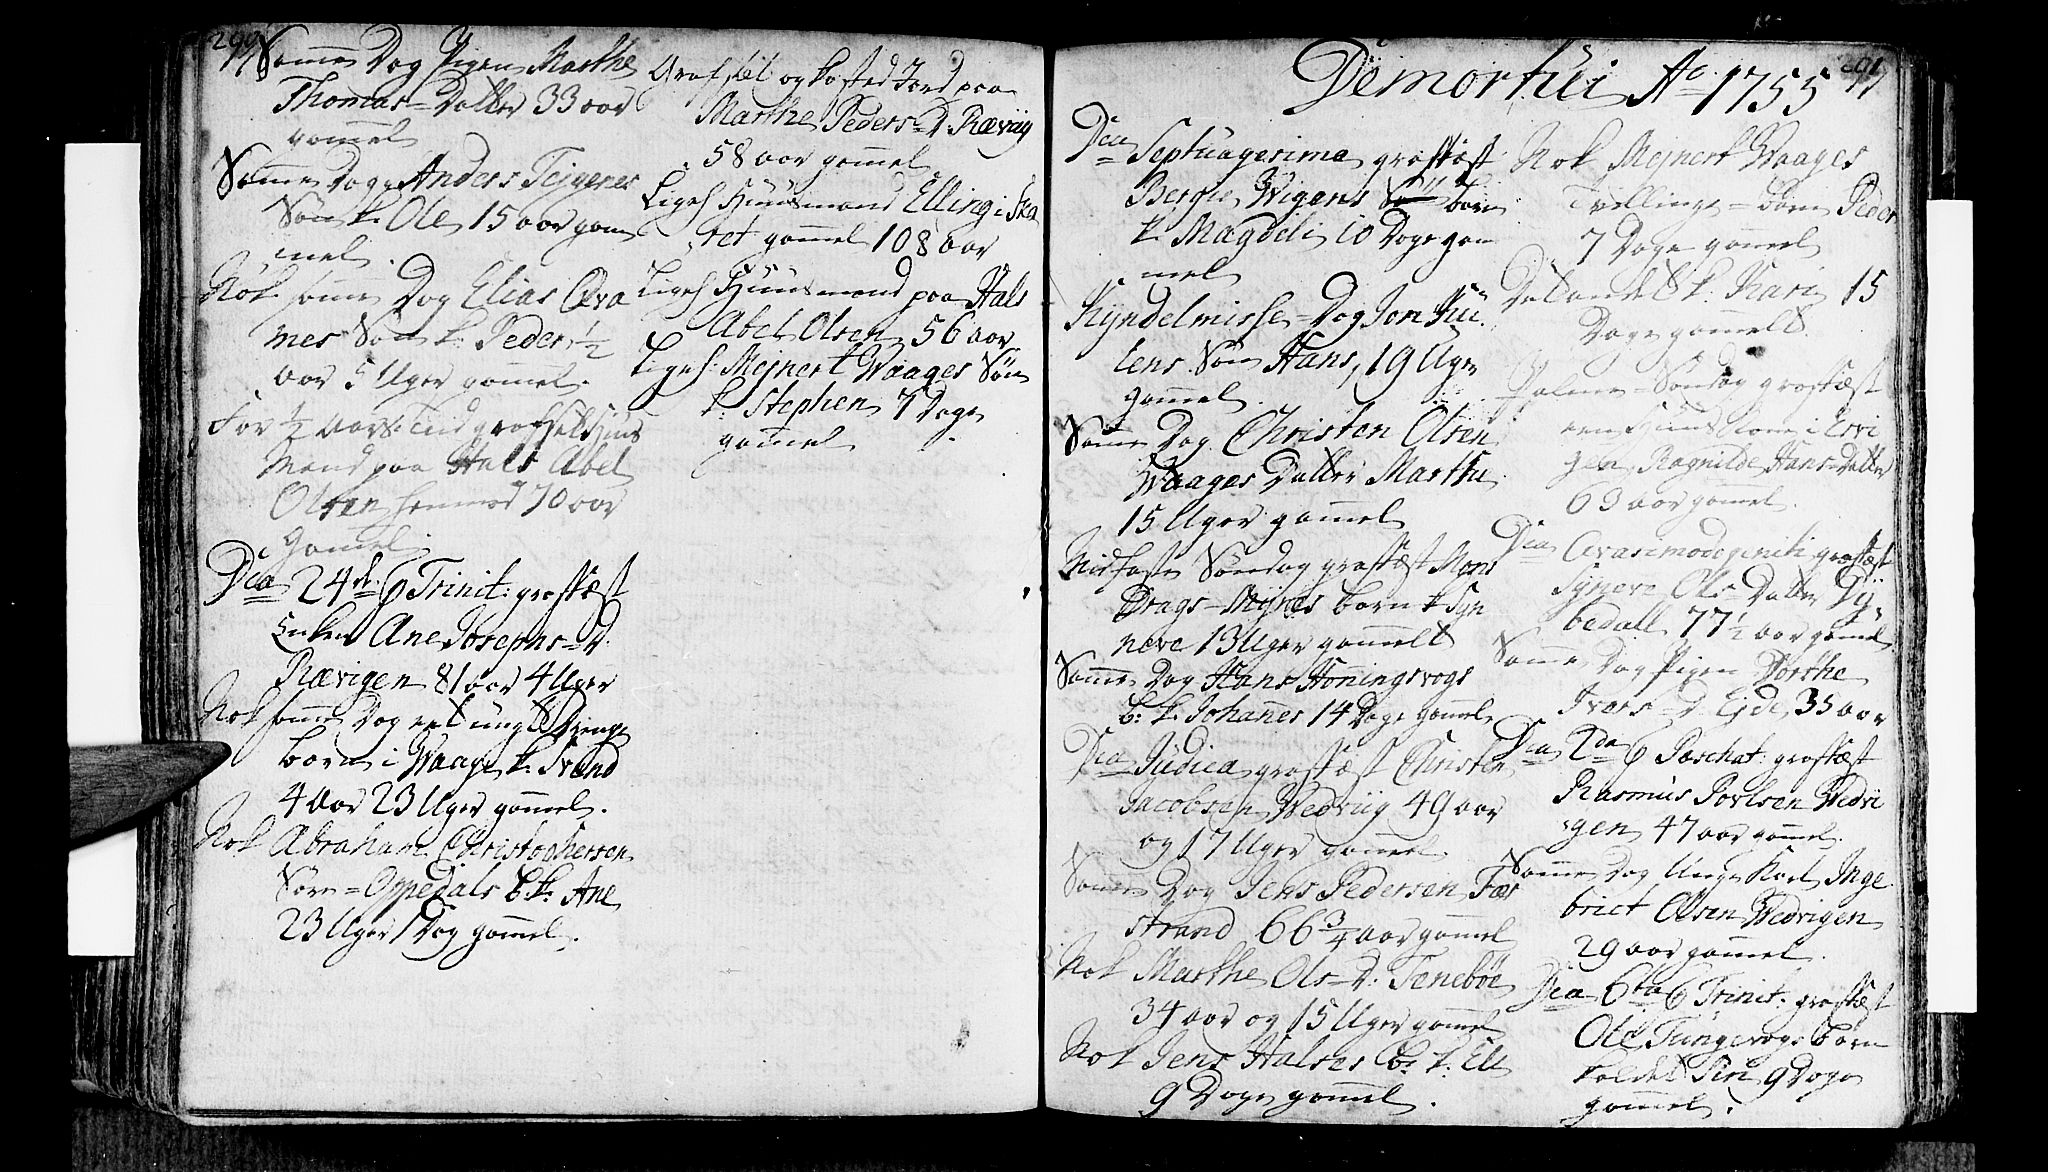 299
Samme Dag Pigen Marthe
Thomas=Datter 33 aar
gammel
Samme Dag Anders Tejgenes
Søn k. Ole 15 aar gam
mel.
Nok samme Dag Elias Qva
mes Søn k: Peder, 1/2
aar 5 Uger gammel.
For 1/2 aars tiid grafsat Huus
Mand paa Hals Abel
Olsen henmod 70 aar
gamel
Dca 24de p Trinit: grafkæst
Enken Ane Josephs=D:
Rævigen 81 aar 4 Uger
Nok samme Dag eet ungt Drenge
barn i Waage k. Svend
4 aar 23 Uger gammel.
Nok Abraham Christophersen
Søre=Oppedals b. k: Ane
23 Uger 1 Dag gammel.
Graf og kasted Jord paa
Marthe Peders=D. Rævig
58 aar gammel
Ligesaa Huusmand Elling i Ska
tet gammel 108 aar
Ligesaa Huusmand paa Hals
Abel Olsen, 56 aar
Ligesaa Mejnert Waages Søn
k: Stephen 7 Dage
gammel.
Demortui Ao 1755
Dca Septuagesima grafkæst
Berge Wigens barn
k. Magdeli 10 Dage gam
mel
Kyndelmisse=Dag Jon Kui
lens Søn Hans, 19 Uger
gammel.
Samme Dag Christen Olsen
Waages Datter Marthe
15 Uger gammel
Midfaste Søndag grafkæst Mons
Drags=Mynes barn k Syn
neve 13 Uger gammelt
Samme Dag Hans Honingsvogs
b: k. Johannes 14 Dage gammel
Dca Judica grafkæst Christen
Jacobsen Wedviig 49 aar
og 17 Uger gammel
Samme Dag Jens Pedersen Fær
strand 66 3/4 aar gammel
Nok Marthe Ols=D: Tenebøe
34 aar og 15 Uger gammel
Nok Jens Halses b: k. Eli
9 Dage gammel.
Nok Mejnert Waages
Tvillinge=barn Peder
7 Dage gammel
k. Kari 15
Dage gammelt
Palme=Søndag grafkæst
een Huus Kone i Ervi
gen Ragnilde Hans=Datter
63 aar gammel.
Dca Qvasimodogeniti grafkæst
Synneve Ols Datter Dy,
bedall 77 1/2 aar gamel
Samme Dag Pigen Dorthe
Ivers=D. Ejde, 35 aar
Dca 2da p Paschat: grafkæst
Rasmus Povlsen Wedvi
gen 47 aar gammel.
Samme Dag Unge Karl Inge
brict Olsen Wedvigen
29 aar gammel.
Dca 6ta p Trinit: grafkæst
Ole Tungevogs barn
kaldet Siri 9 Dage
gammel.